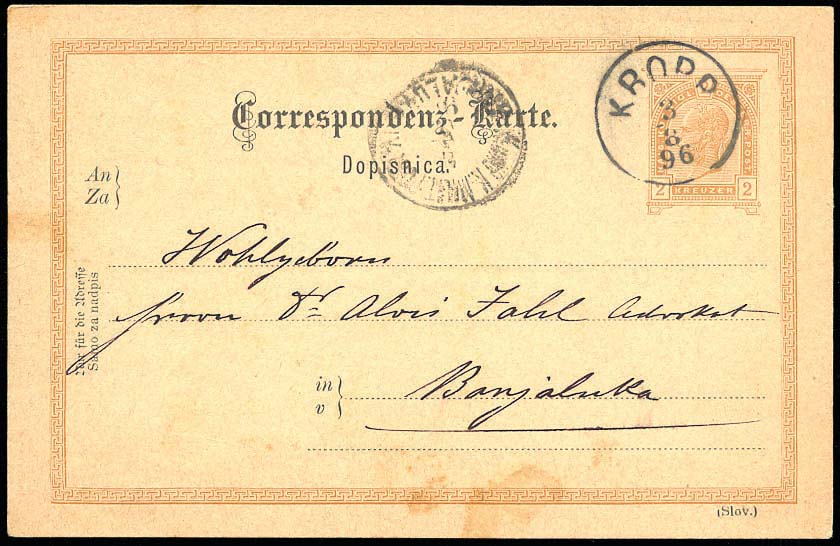 KROPP
3
6
96
Correspondenz-Karte.
Dopisnica.
2 KREUZER 2
An
Za
Wohlgeborn
Herrn Dr Alois Fahl Advokat
in
v
Banjaluka
Nur für die Adresse
Samo za nadpis
(Slov.)